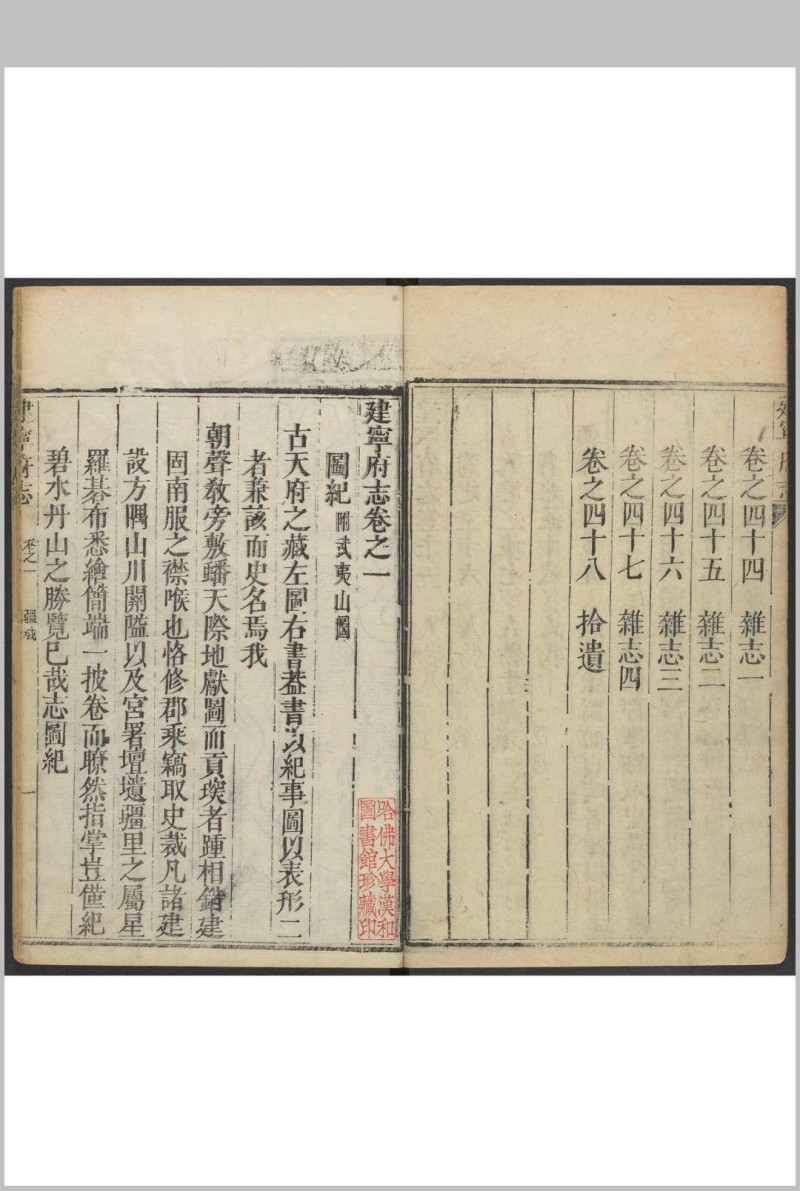 建寧府志
卷之四十四　雜志一
卷之四十五　雜志二
卷之四十六　雜志三
卷之四十七　雜志四
卷之四十八　拾遺
建寧府志卷之一
圖紀　附武夷山圖
古天府之藏左圖右書葢書以紀事圖以表形二
者兼該而史名焉我
朝聲敎旁敷蟠天際地獻圖而貢琛者踵相錯建
固南服之襟喉也恪修郡乘竊取史裁凡諸建
設方隅山川關隘以及宮署壇壝疆里之屬星
羅棊布悉繪簡端一披卷而瞭然指掌豈僅紀
碧水丹山之勝覽已哉志圖紀
建寧府志　卷之一　疆域　一
哈佛大學漢和
圖書館珍藏印